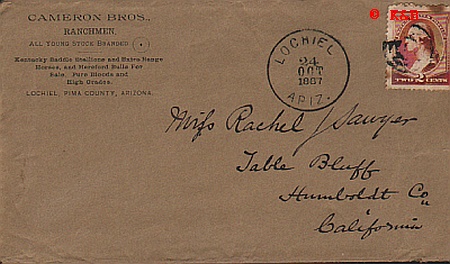 © K&D
CAMERON BROS.,
RANCHMEN,
ALL YOUNG STOCK BRANDED
Kentucky Saddle Stallions and Extra Range
Horses, and Hereford Bulls For
Sale. Pure Bloods and
High Grades.
LOCHIEL, PIMA COUNTY, ARIZONA.
LOCHIEL
24
OCT
1887
ARIZ.
TWO 2 CENTS
Miss Rachel Sawyer
Table Bluff
Humboldt Co
California